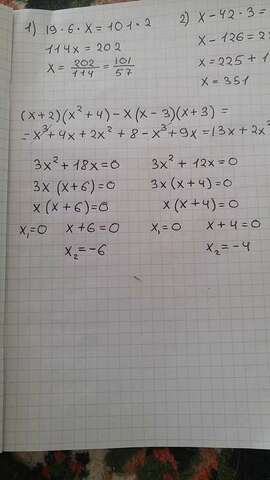 1) 19·6·x=101·2
114x=202
x=202/114=101/57
2) x-42·3=
x-126=22
x=225+1
x=351
(x+2)(x²+4)-x(x-3)(x+3)=
=x³+4x+2x²+8-x³+9x=13x+2x²
3x²+18x=0
3x(x+6)=0
x(x+6)=0
x₁=0 x+6=0
x₂=-6
3x²+12x=0
3x(x+4)=0
x(x+4)=0
x₁=0 x+4=0
x₂=-4